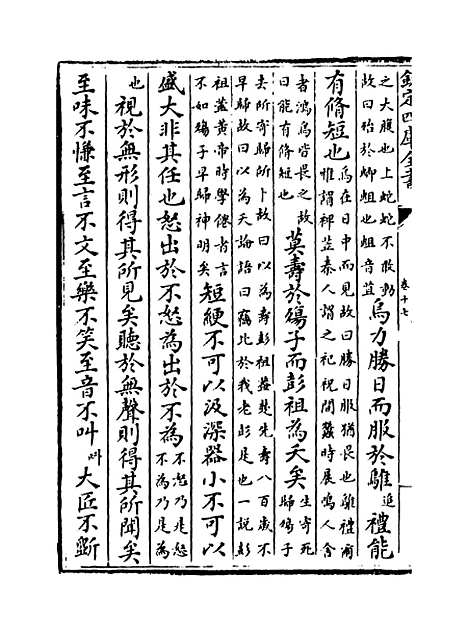 欽定四庫全書 卷十七
之大腹也上蛇蛇不敢動
故曰殆於蝍蛆也蛆音苴
烏力勝日而服於鵻追禮能
有脩短也
烏在日中而見故曰勝日服猶畏也鵻禮爾
雅謂裨苙秦人謂之祀祝間蠶時晨鳴人舍
者鴻烏皆畏之故
曰能有脩短也
莫壽於殤子而彭祖為夭矣
生寄死
歸殤子
去所寄歸所卜故曰以為壽彭祖蓋楚先壽八百歲不
早歸故曰以為夭論語曰竊比於我老彭是也一說彭
祖蓋黃帝時學僊者言
不如殤子早歸神明矣
短綆不可以汲深器小不可以
盛大非其任也怒出於不怒為出於不為
不怒乃是怒
不為乃是為
也
視於無形則得其所見矣聽於無聲則得其所聞矣
至味不慊至言不文至樂不笑至音不叫
大匠不斲